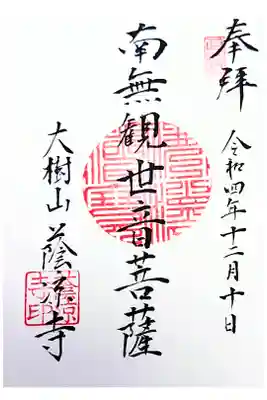 奉拝
令和四年十二月十日
南無観世音菩薩
大樹山 蔭凉寺
蔭凉寺印